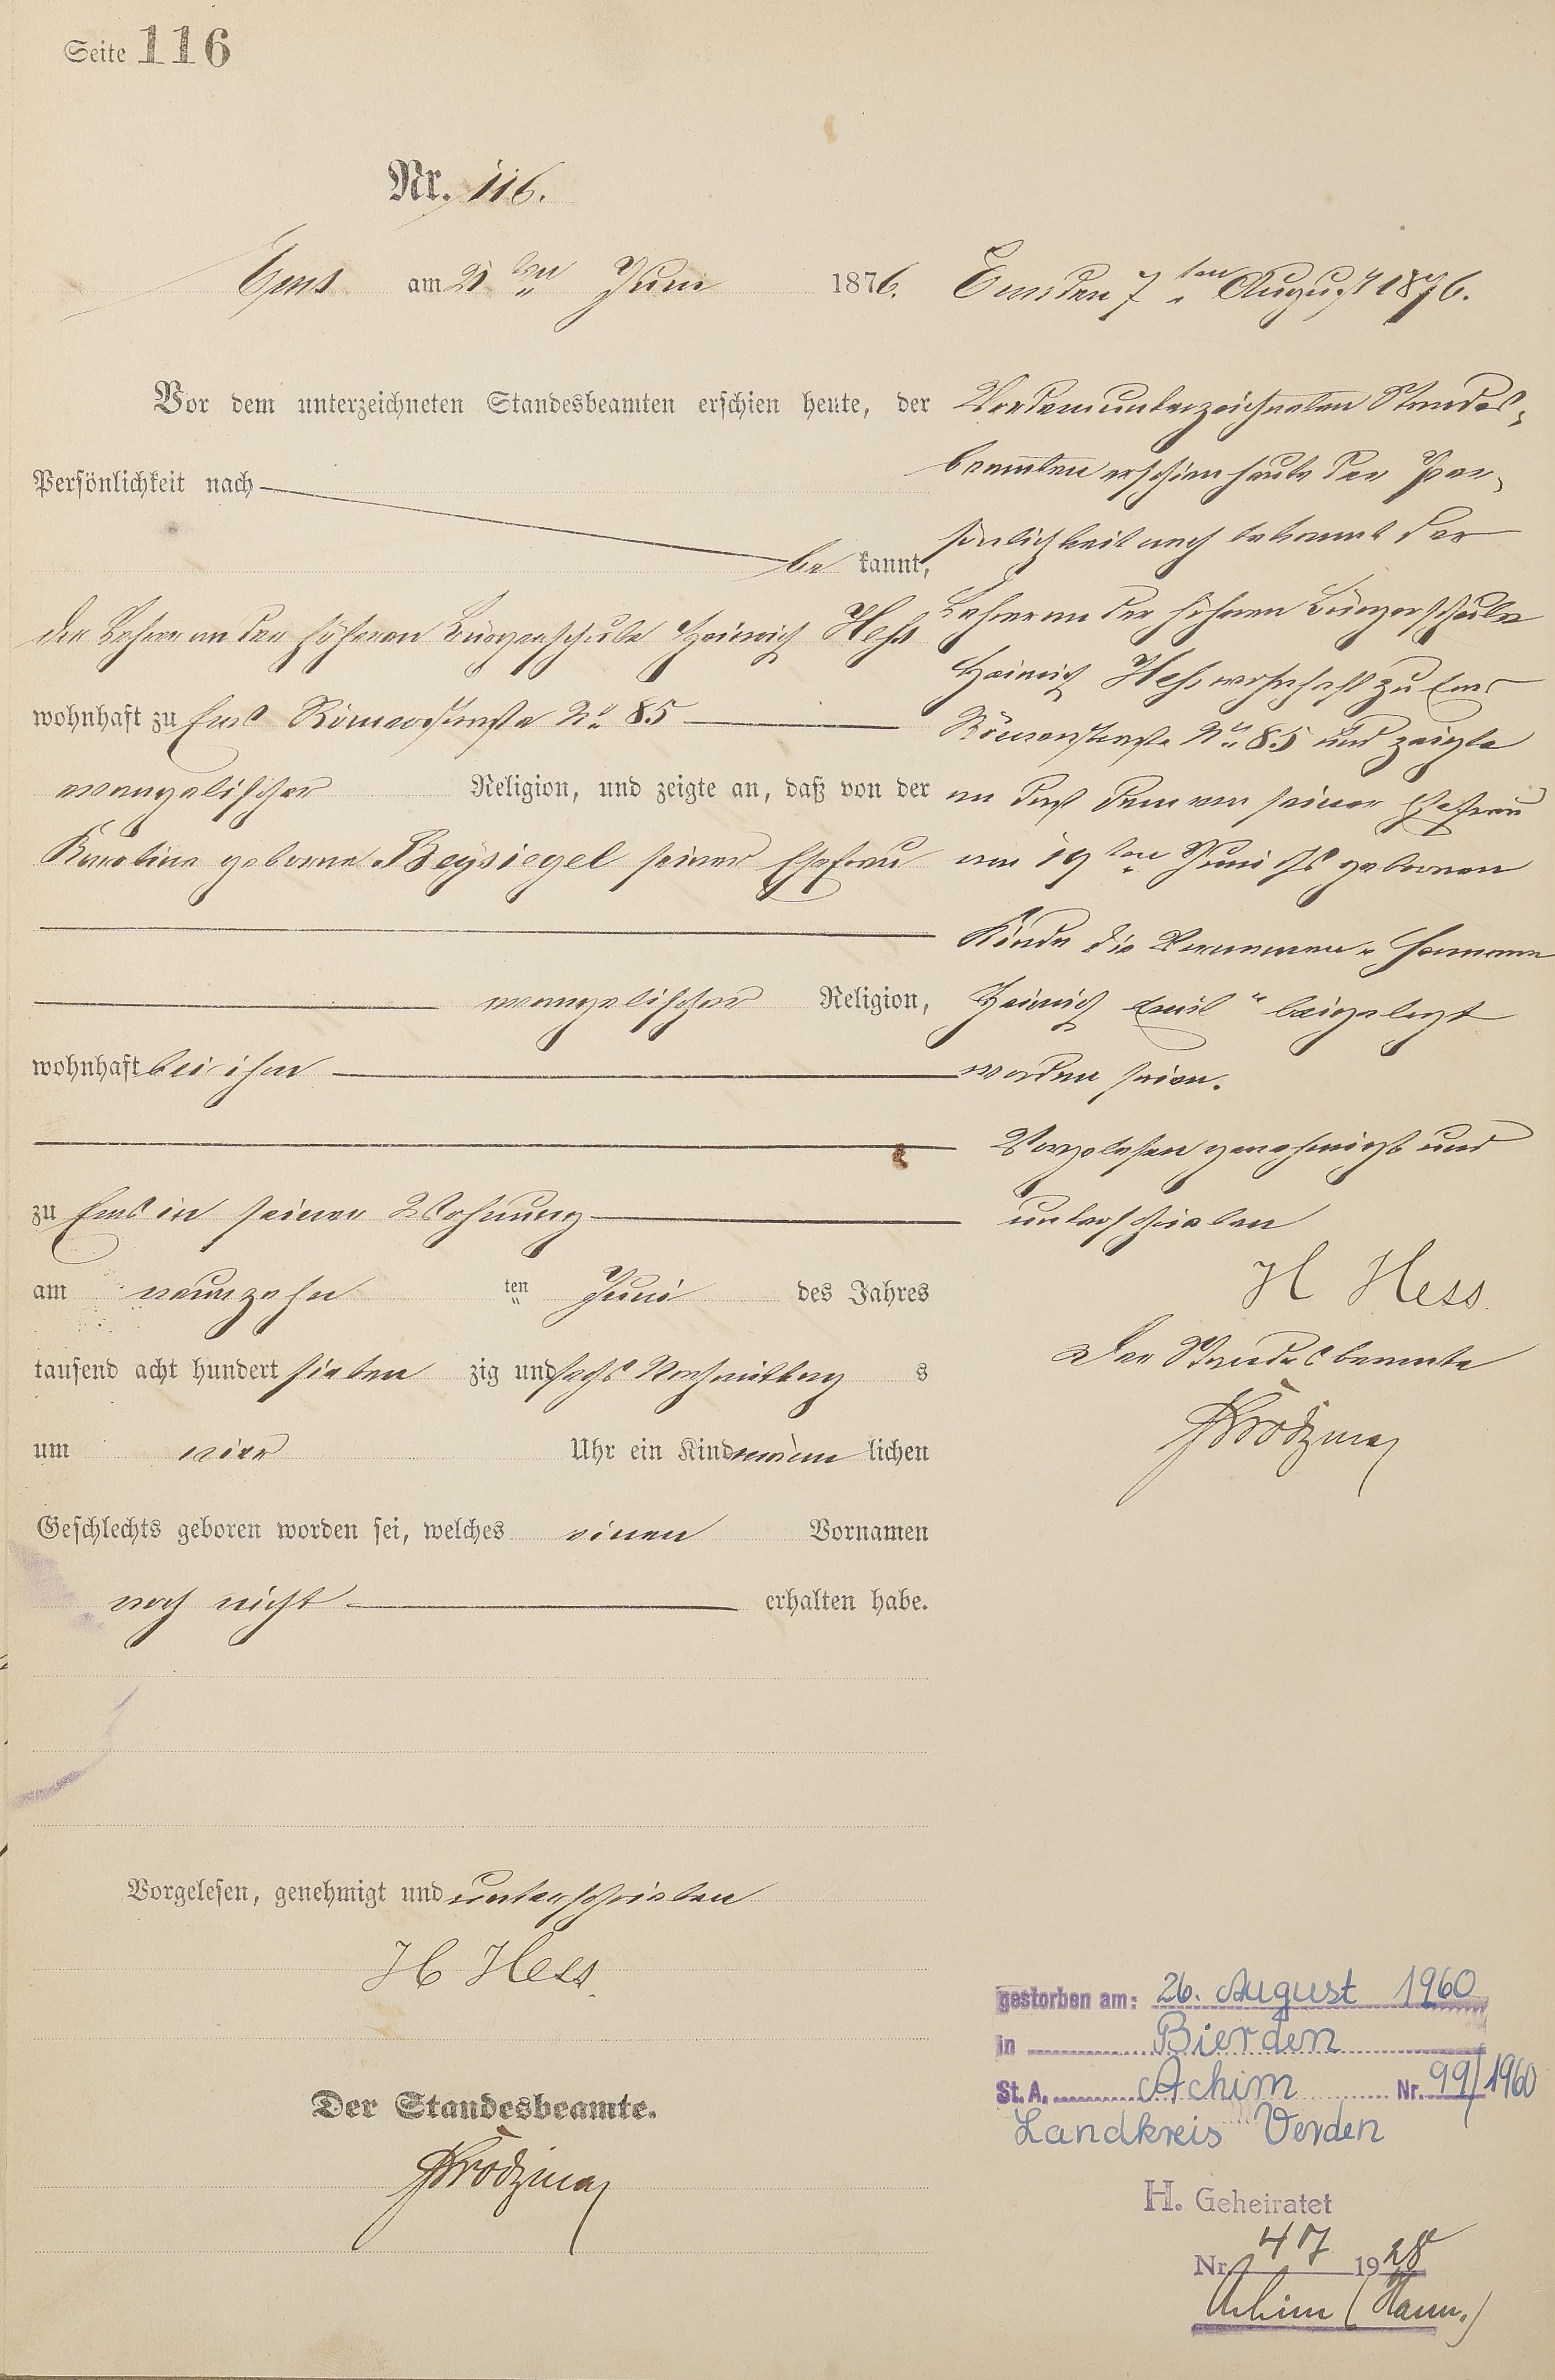 Seite 116
Nr. 116.
Ems am 21 ten Juni 1876.
Vor dem unterzeichneten Standesbeamten erschien heute, der
Persönlichkeit nach
be kannt,
der Lehrer an der höheren Bürgerschule Heinrich Hess
wohnhaft zu Ems Römerstraße No 85
evangelischer Religion, und zeigte an, daß von der
Karoline geborene Beysiegel seiner Ehefrau
evangelischer Religion,
wohnhaft bei ihm
zu Ems in seiner Wohnung
am neunzehn ten Juni des Jahres
tausend acht hundert sieben zig und sechs Nachmittag s
um vier Uhr ein Kind männ lichen
Geschlechts geboren worden sei, welches einen Vornamen
noch nicht erhalten habe.
Vorgelesen, genehmigt und unterschrieben
H Hess.
Der Standesbeamte.
Ems den 7 ten August 1876.
Vor dem unterzeichneten Standes-
beamten erschien heute der Per-
sönlichkeit nach bekannt der
Lehrer an der höheren Bürgerschule
Heinrich Hess wohnhaft zu Ems
Römerstraße No 85 und zeigte
an daß dem von seiner Ehefrau
am 19 ten Juni cr. geborenen
Kinde die Vornamen „Hermann
Heinrich Emil" beigelegt
worden seien.
Vorgelesen genehmigt und
unterschrieben
H Hess.
Der Standesbeamte
gestorben am: 26. August 1960
in Bierden
St. A. Achim Nr. 99/1960
Landkreis Verden
H. Geheiratet
Nr. 47 1928
Achim (Hann.)